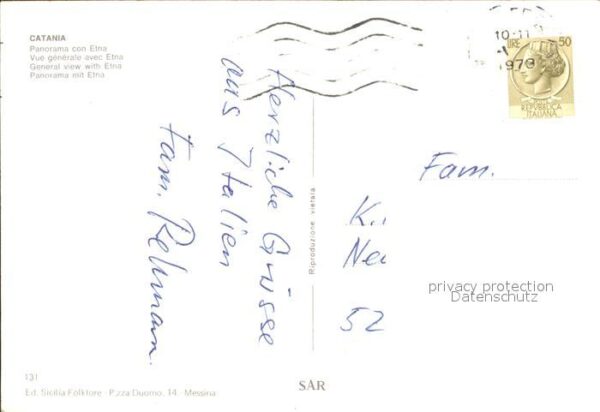 CATANIA
Panorama con Etna
Vue générale avec Etna
General view with Etna
Panorama mit Etna
Herzliche Grüsse
aus Italien
Fam.
Riproduzione vietata
10-11
1979
LIRE 50
REPVBBLICA
ITALIANA
Fam.
K.
Neu
52
privacy protection
Datenschutz
131
Ed. Sicilia Folklore - P.zza Duomo, 14 - Messina
SAR